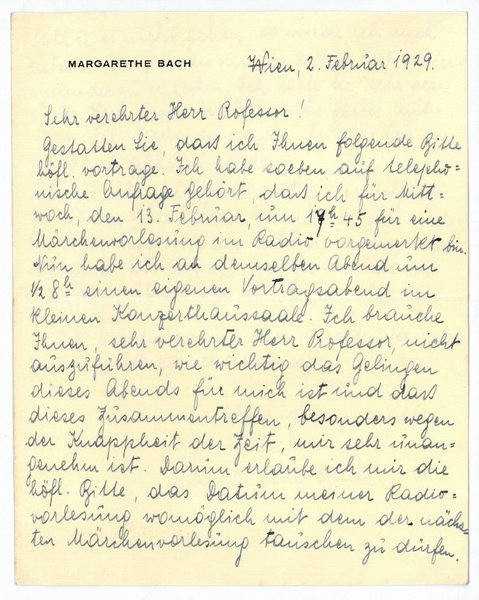 MARGARETHE BACH
Wien, 2. Februar 1929.
Sehr verehrter Herr Professor!
Gestatten Sie, dass ich Ihnen folgende Bitte
höfl. vortrage. Ich habe soeben auf telepho-
nische Anfrage gehört, dass ich für Mitt-
woch, den 13. Februar, um 17h 45 für eine
Märchenvorlesung im Radio vorgemerkt bin.
Nun habe ich an demselben Abend um
1/2 8h einen eigenen Vortragsabend im
kleinen Konzerthaussaale. Ich brauche
Ihnen, sehr verehrter Herr Professor, nicht
auszuführen, wie wichtig das Gelingen
dieses Abends für mich ist und dass
dieses Zusammentreffen, besonders wegen
der Knappheit der Zeit, mir sehr unan-
genehm ist. Darum erlaube ich mir die
höfl. Bitte, das Datum meiner Radio-
vorlesung womöglich mit dem der nächs-
ten Märchenvorlesung tauschen zu dürfen.